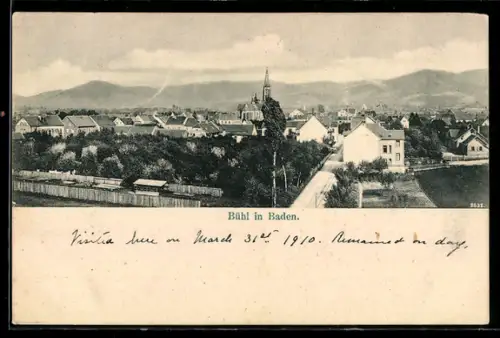 Bühl in Baden.
Visited here on March 31st 1910. Remained on day.